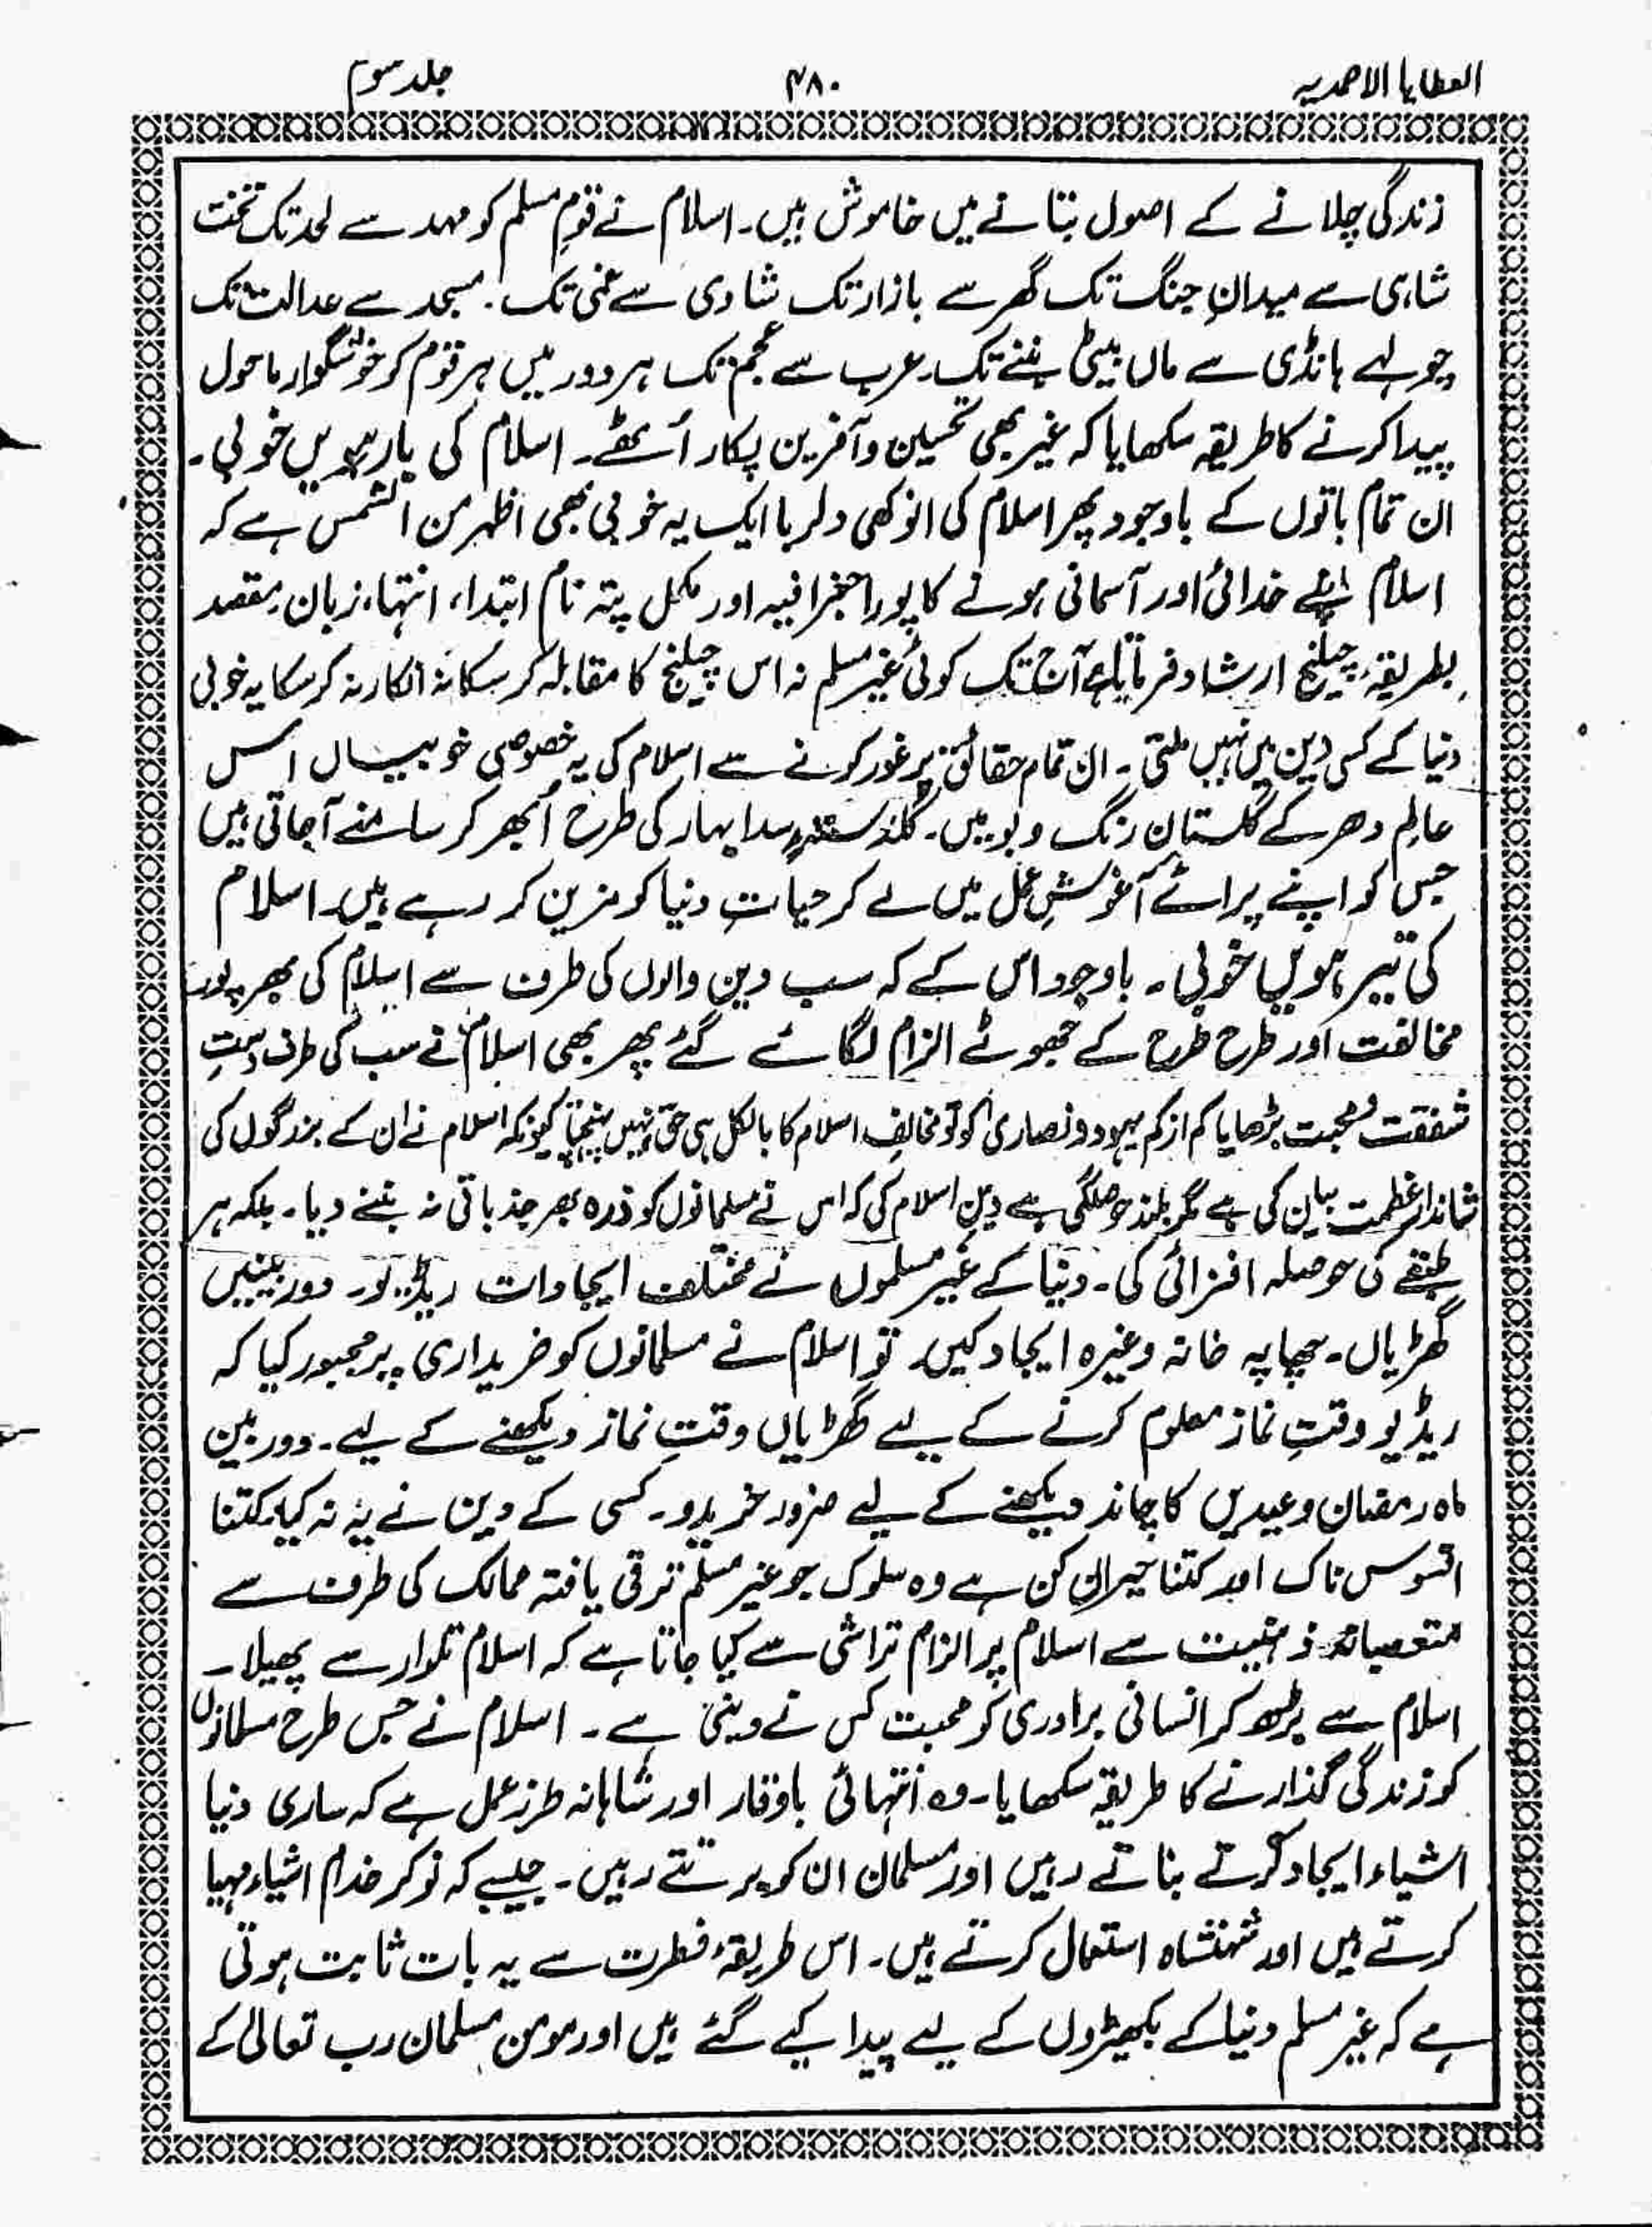 العطایا الاحمدیہ
۴۸۰
جلد سوم
زندگی چلانے کے اصول بتانے میں خاموش ہیں۔ اسلام نے قومِ مسلم کو مہد سے لحد تک تخت
شاہی سے میدانِ جنگ تک گھر سے بازار تک شادی سے غمی تک۔ مسجد سے عدالت تک
چولہے ہانڈی سے ماں بیٹی بننے تک۔ عرب سے عجم تک ہر دور میں ہر قوم کو خوشگوار ماحول
پیدا کرنے کا طریقہ سکھایا کہ غیر بھی تحسین و آفرین پکار اُٹھے۔ اسلام کی بارہویں خوبی۔
ان تمام باتوں کے باوجود پھر اسلام کی انوکھی دلربا ایک یہ خوبی بھی اظہر من الشمس ہے کہ
اسلام اپنے خدائی اور آسمانی ہونے کا پورا جغرافیہ اور مکمل پتہ نام ابتداء، انتہاء، زبان، مقصد
بطریقۂ چیلنج ارشاد فرماتا ہے آج تک کوئی غیر مسلم نہ اس چیلنج کا مقابلہ کر سکا نہ انکار نہ کر سکا یہ خوبی
دنیا کے کسی دین میں نہیں ملتی۔ ان تمام حقائق پر غور کرنے سے اسلام کی یہ خصوصی خوبیاں اس
عالمِ دھر کے گلستانِ رنگ و بو میں۔ گلدستۂ سدا بہار کی طرح اُبھر کر سامنے آجاتی ہیں
جس کو اپنے پرائے آغوشِ عمل میں لے کر حیاتِ دنیا کو مزین کر رہے ہیں۔ اسلام
کی تیرہویں خوبی۔ باوجود اس کے کہ سب دین والوں کی طرف سے اسلام کی بھرپور
مخالفت اور طرح طرح کے جھوٹے الزام لگائے گئے پھر بھی اسلام نے سب کی طرف دستِ
شفقت و محبت بڑھایا کم از کم یہود و نصاریٰ کو تو مخالفِ اسلام کا بالکل ہی حق نہیں پہنچتا کیونکہ اسلام نے ان کے بزرگوں کی
شاندار عظمت بیان کی ہے مگر بلند حوصلگی ہے دینِ اسلام کی کہ اس نے مسلمانوں کو ذرہ بھر جذباتی نہ بننے دیا۔ بلکہ ہر
طبقے کی حوصلہ افزائی کی۔ دنیا کے غیر مسلموں نے مختلف ایجادات ریڈیو۔ دوربینیں
گھڑیاں۔ چھاپہ خانہ وغیرہ ایجاد کیں۔ تو اسلام نے مسلمانوں کو خریداری پر مجبور کیا کہ
ریڈیو وقتِ نماز معلوم کرنے کے لیے گھڑیاں وقتِ نماز دیکھنے کے لیے۔ دوربین
ماہ رمضان و عیدین کا چاند دیکھنے کے لیے ضرور خریدو۔ کسی کے دین نے یہ نہ کیا۔ کتنا
افسوس ناک اور کتنا حیران کن ہے وہ سلوک جو غیر مسلم ترقی یافتہ ممالک کی طرف سے
متعصبانہ ذہنیت سے اسلام پر الزام تراشی سے کیا جاتا ہے کہ اسلام تلوار سے پھیلا۔
اسلام سے بڑھ کر انسانی برادری کو محبت کس نے دینی ہے۔ اسلام نے جس طرح مسلمانوں
کو زندگی گذارنے کا طریقہ سکھایا۔ وہ انتہائی باوقار اور شاہانہ طرزِ عمل ہے کہ ساری دنیا
اشیاء ایجاد کرتے بناتے رہیں اور مسلمان ان کو برتتے رہیں۔ جیسے کہ نوکر خدام اشیاء مہیا
کرتے ہیں اور شہنشاہ استعمال کرتے ہیں۔ اس طریقۂ فطرت سے یہ بات ثابت ہوتی
ہے کہ غیر مسلم دنیا کے بکھیڑوں کے لیے پیدا کیے گئے ہیں اور مومن مسلمان رب تعالیٰ کے